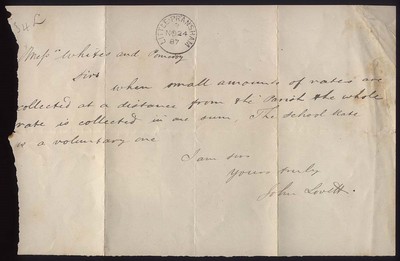 S4L
LITTLE-PRANSHAM
NO 24
87
Messrs Whites and Pomeroy
Sirs
When small amounts of rates are
collected at a distance from the Parish the whole
rate is collected in one sum. The School Rate
is a voluntary one
I am sirs
Yours truly
John Lovett.